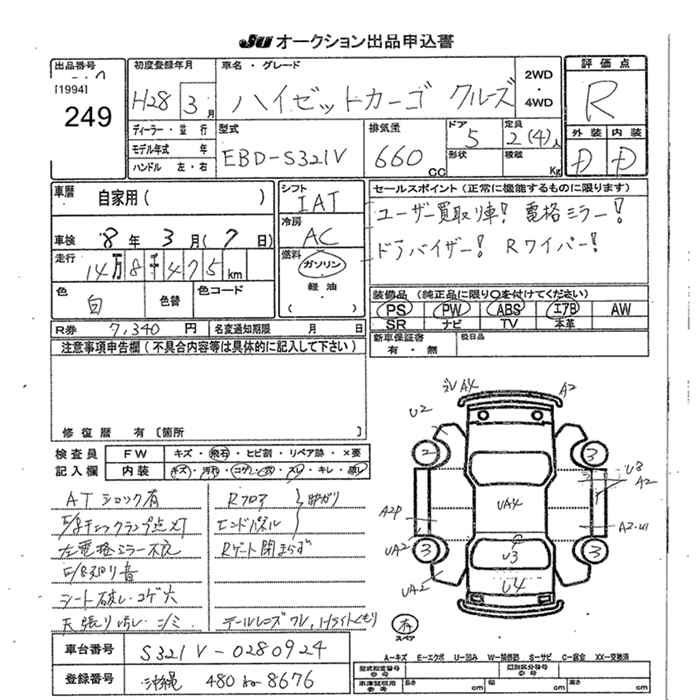 JU オークション出品申込書
出品番号
[1994]
249
初度登録年月
H28 3月
車名・グレード
ハイゼットカーゴ クルーズ
2WD
・
4WD
評価点
R
ディーラー・並行
モデル年式 年
ハンドル 左・右
型式
EBD-S321V
排気量
660 CC
ドア
5
形状
定員
2(4)人
積載
Kg
外装 内装
D D
車歴
自家用( )
車検 8年 3月(7日)
走行
14万8千475km
色
白
色替
色コード
シフト
IAT
冷房
AC
燃料
ガソリン
・
軽油
セールスポイント(正常に機能するものに限ります)
ユーザー買取り車! 電格ミラー!
ドラバイザー! Rワイパー!
装備品(純正品に限り○を付けてください)
PS PW ABS エアB AW
SR ナビ TV 本革
新車保証書
有・無
後日品
R券 7,340円
名変通知期限 月 日
注意事項申告欄(不具合内容等は具体的に記入して下さい)
修復歴 有〔箇所 〕
検査員
記入欄
FW キズ・飛石・ヒビ割・リペア跡・×要
内装 キズ・汚れ・コゲ・穴・スレ・キレ・破し
ATショック有
左電格ミラー不良
シート破レ・コゲ大
天張り汚レ・シミ
Rフロア
エンドパネル
Rゲート閉まらず
テールレンズワレ、Hライトくもり
車台番号 S321V-0280924
登録番号 沖縄 480 8676
A2
U2
2
3
U8
A2
UA4
A2P
UA2
3
3
U3
U4
スペア
A-キズ E-エクボ U-凹み W-補修跡 S-サビ C-腐食 XX-交換済
型式指定番号
類別区分番号
車庫証明用参考
長さ cm 幅 cm 高さ cm